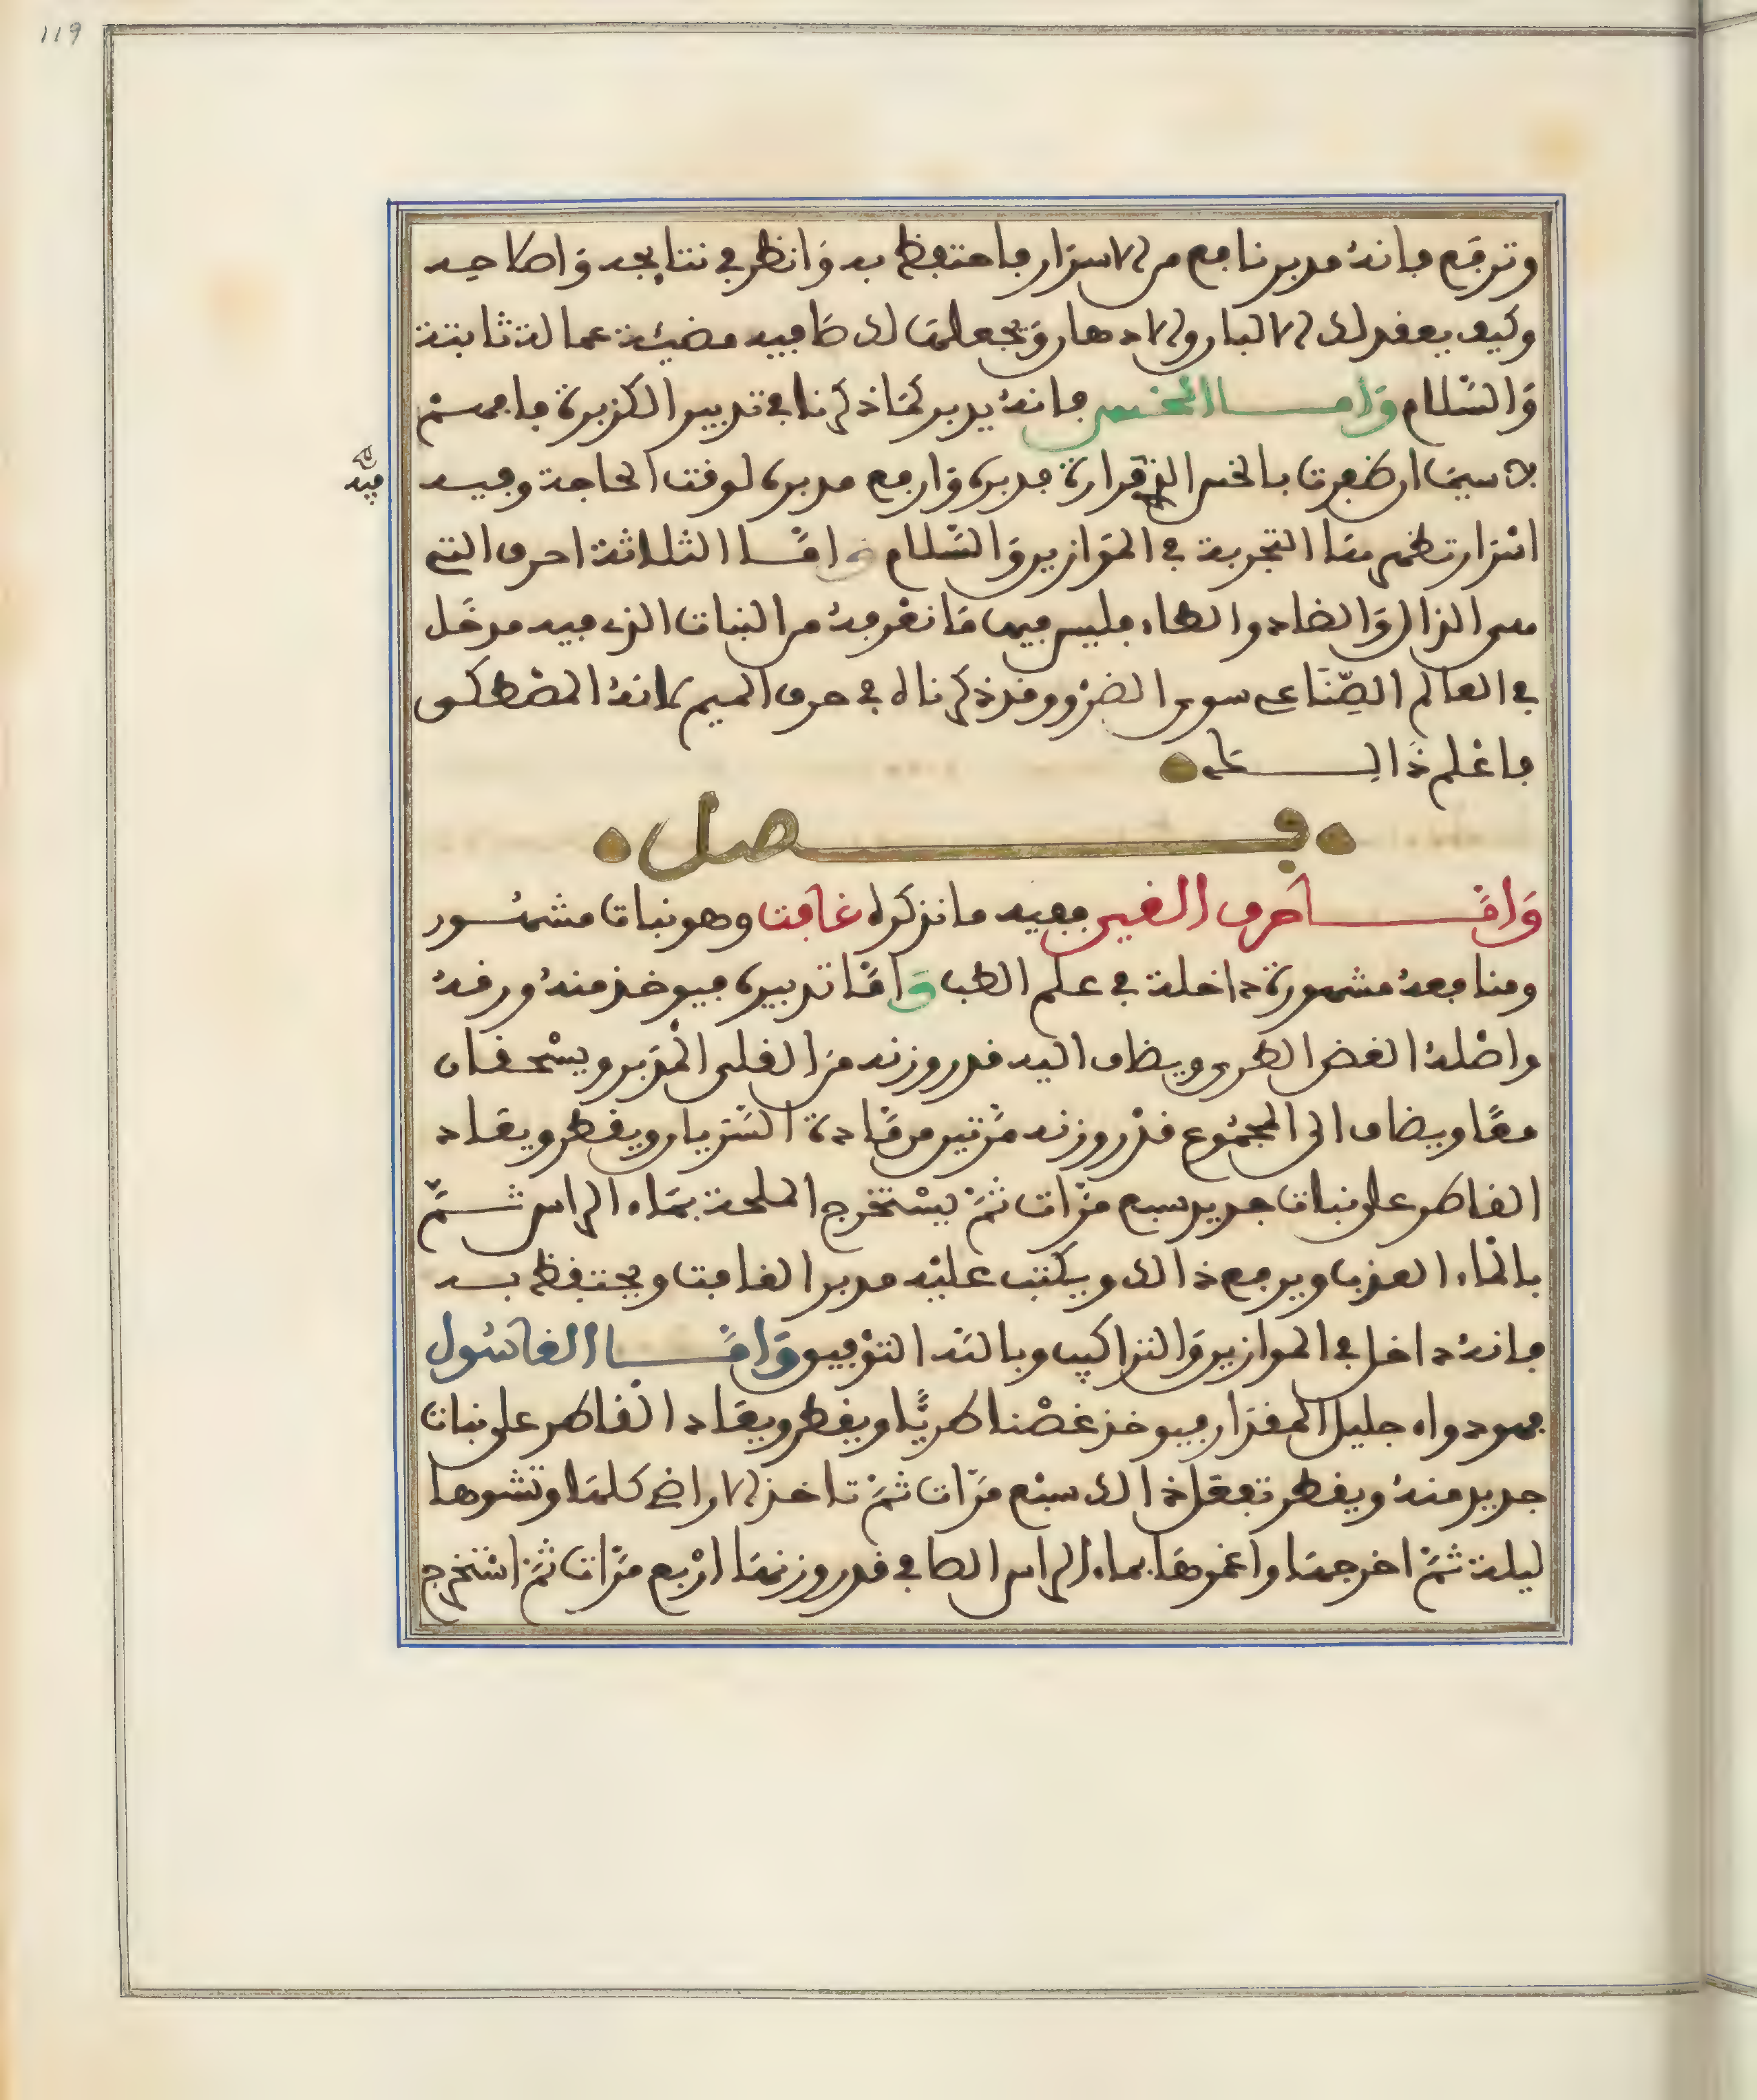 119
وترفع فإنه مدبر نافع من الاسرار فاحتفظ به وانظر في نتايجه واصاحبه
وكيف يعقد لك الالبان والادهان ويجعلها لك صافيه مضيئة عمالة ثابتة
والسلام واما الخس فإنه يدبر كما ذكرنا في تدبير الكزبرة فافهم
لا سيما ان ظفرت بالخس الذي مدبره وارفع مدبره لوقت الحاجة وفيه
فيه
اسرار تظهرها التجربة في الموازين والسلام واما الثلاثة احرف التي
هي الذال والضاد والظاء فليس فيها ما نعرفه من النبات الذي فيه مدخل
في العالم الصناعي سوى الضرو وقد ذكرناه في حرف الميم لانه المصطكى
فاعلم ذالك
فصل
واما حرف الغين ففيه ما نذكره غافت وهو نبات مشهور
ومنافعه مشهورة داخلة في علم الطب واما تدبيره فيوخذ منه ورقه
واصله الغض الطري ويضاف اليه قدر وزنه من القلي المدبر ويسحقان
معا ويضاف الى المجموع قدر وزنه مرتين من مادة السريان ويقطر ويعاد
القاطر على نبات جديد سبع مرات ثم يستخرج الملحة بماء الراس ثم
بالماء العذب ويرفع ذالك ويكتب عليه مدبر الغافت ويحتفظ به
فإنه داخل في الموازين والتراكيب وبالله التوفيق واما الغاسول
فهو دواء جليل المقدار فيوخذ غصنا طريا ويقطر ويعاد القاطر على نبات
جديد منه ويقطر تفعل ذالك سبع مرات ثم تاخذ الاراضي كلها وتشوها
ليلة ثم اخرجها واغمرها بماء الراس الصافي قدر وزنها اربع مرات ثم استخرج